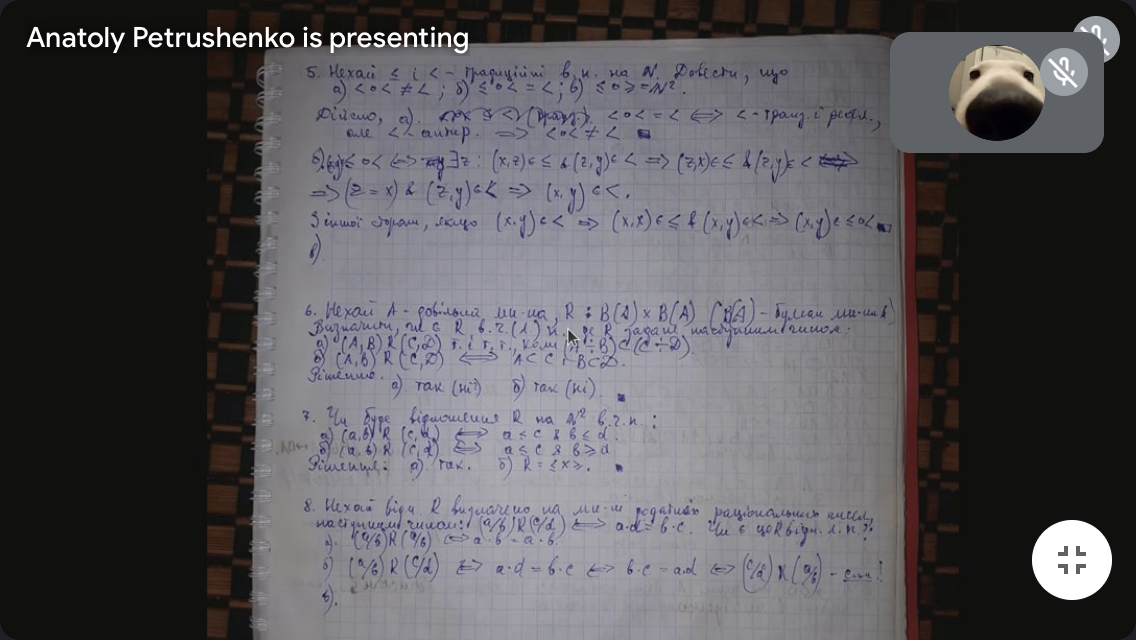 Anatoly Petrushenko is presenting
5. Нехай ≤ і < - традиційні в.п. на N. Довести, що
а) <o< ≠ < ; б) ≤o< = < ; в) ≤o≥ = N².
Дійсно, а). <o< = < ⟺ < - транз. і рефл.,
але < антир. ⟹ <o< ≠ <
≤o< ⟺ ∃z : (x,z)∈≤ & (z,y)∈< ⟹ (z,x)∈≤ & (z,y)∈<
⟹ (z = x) & (z,y)∈< ⟹ (x,y)∈<.
З іншої сторони, якщо (x,y)∈< ⟹ (x,x)∈≤ & (x,y)∈< ⟹ (x,y)∈ ≤o<
в).
6. Нехай А - довільна мн-на, R : B(A) × B(A) (B(A) - булеан мн-ни)
Визначити, чи є R в.ч.(л.)п. де R задане наступним чином:
а) (A,B) R (C,D) т. і т. т., коли (A ÷ B) ⊂ (C ÷ D).
б) (A,B) R (C,D) ⟺ A ⊂ C і B ⊂ D.
Рішення.
а). так (ні) б) так (ні).
7. Чи буде відношення R на N² в.ч.п. :
а) (a,b) R (c,d) ⟺ a ≤ c & b ≤ d.
б) (a,b) R (c,d) ⟺ a ≤ c & b ≥ d
Рішення: а). так. б) R = ≤×≥.
8. Нехай відн. R визначено на мн-ні додатніх раціональних чисел
наступним чином: (a/b) R (c/d) ⟺ a·d = b·c. Чи є це R відн. л.п.?
а). (a/b) R (a/b) ⟺ a·b = a·b.
б) (a/b) R (c/d) ⟺ a·d = b·c ⟺ b·c = a·d ⟺ (c/d) R (a/b) - сим!
в).